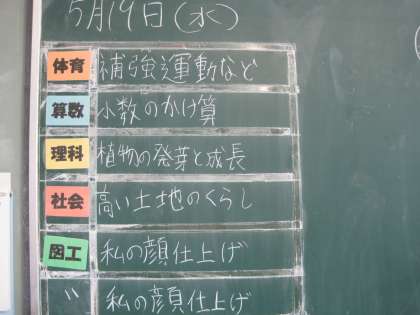 5月19日(水)
体育 補強運動など
算数 小数のかけ算
理科 植物の発芽と成長
社会 高い土地のくらし
図工 私の顔仕上げ
〃 私の顔仕上げ